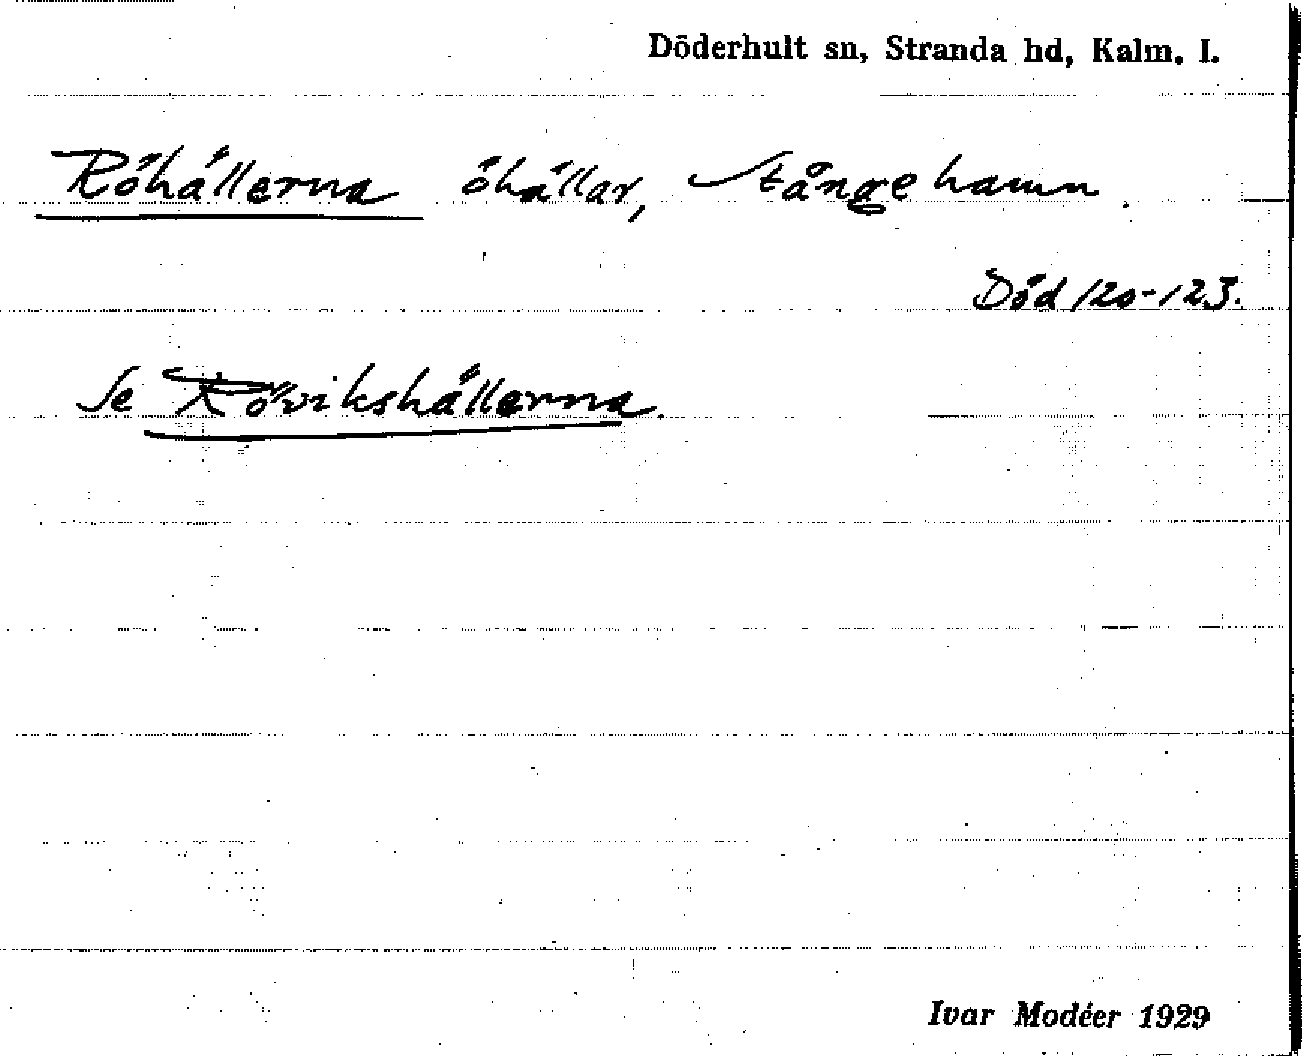 Döderhult sn, Stranda hd, Kalm. l.
Röhällerna öhällar, Stångehamn
Död 120-123.
Se Rövikshällerna.
Ivar Modéer 1929